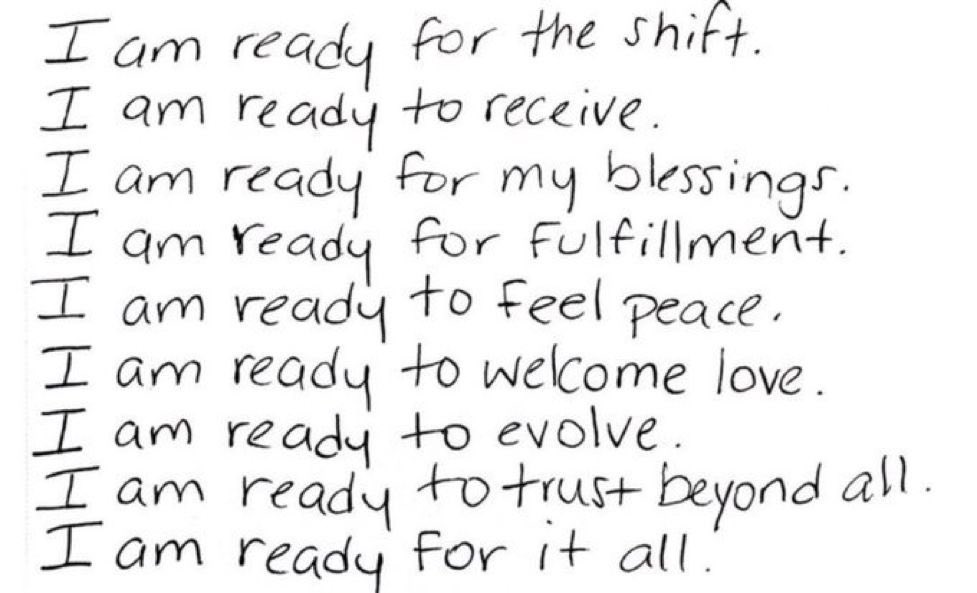 I am ready for the shift.
I am ready to receive.
I am ready for my blessings.
I am ready for fulfillment.
I am ready to feel peace.
I am ready to welcome love.
I am ready to evolve.
I am ready to trust beyond all.
I am ready for it all.